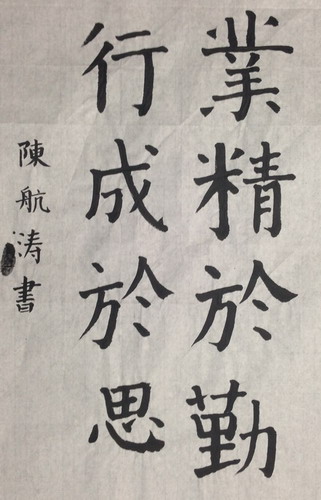 業精於勤
行成於思
陳航涛書